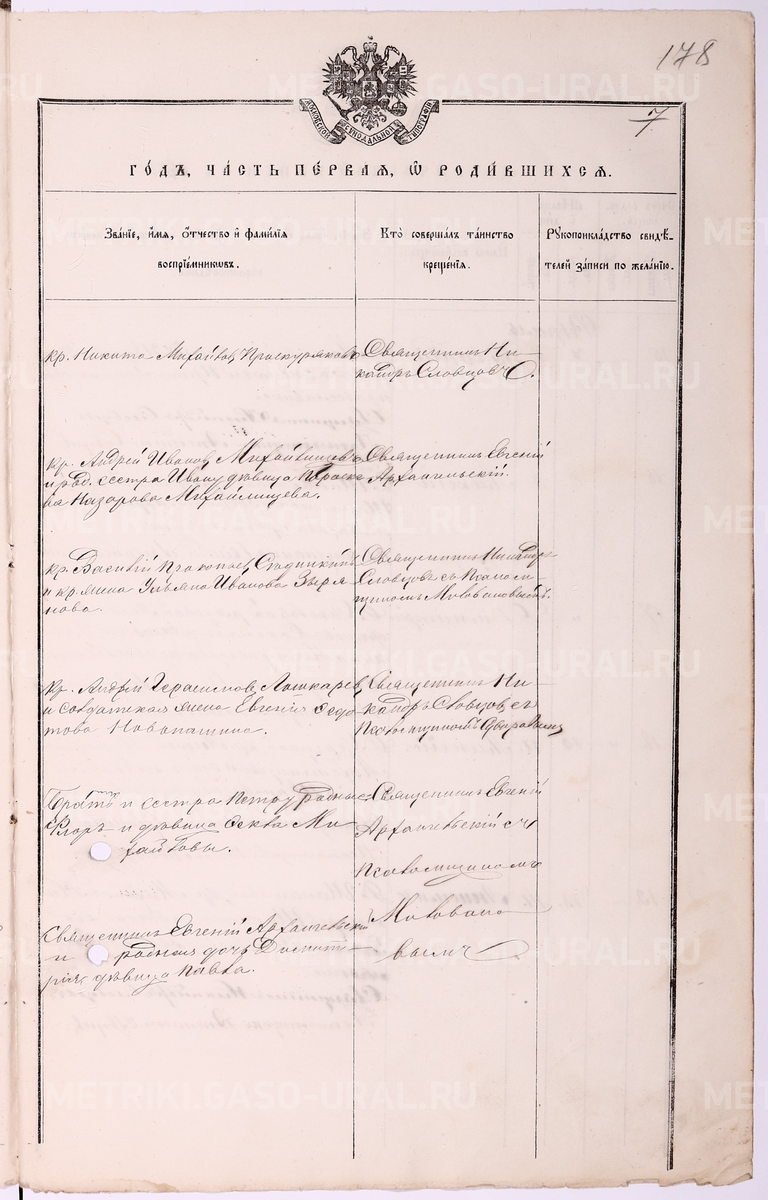 178
7
METRIKI.GASO-URAL.RU
МОСКОВСКОЙ СѴНОДАЛЬНОЙ ТИПОГРАФІИ
ГО́ДЪ, ЧА́СТЬ ПЕ́РВАЯ, Ѽ РОДИ́ВШИХСЯ.
Зва́нїе, и҆́мѧ, ѻ҆́тчество и҆ фами́лїѧ
воспрїе́мникѡвъ.
Кто̀ соверша́лъ та́инство
креще́нїѧ.
Рꙋкоприкла́дство свидѣ́-
телей за́писи по жела́нїю.
кр. Никита Михайловъ Проскуряковъ
Священникъ Ни-
каноръ Словцовъ.
кр. Андрей Ивановъ Михайлищевъ
и род. сестра Ивану девица Параске-
ва Назарова Михайлищева.
Священникъ Евгеній
Архангельскій.
кр. Василій Прокопьев
и кр. жена Ульяна Иванова Зыря-
нова.
Священникъ Никаноръ
Словцовъ съ Псаломщ-
щикомъ Миловановымъ.
кр. Андрей Герасимовъ Лошкаревъ
и солдатская жена Евгенія Федо-
това Новопашина.
Священникъ Ни-
каноръ Словцовъ съ
Псаломщикомъ
Братъ и сестра Петру родные
Флоръ и девица Фекла Ми-
хайловы.
Священникъ Евгеній
Архангельскій съ
Псаломщикомъ
Миловано-
вымъ
Священникъ Евгеній Архангельскій
и родная дочь Димит-
рія девица Павла.